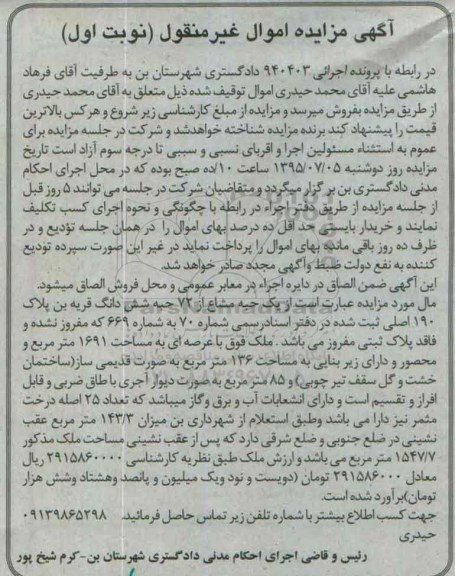 آگهی مزایده اموال غیرمنقول (نوبت اول)
در رابطه با پرونده اجرائی ۹۴۰۴۰۳ دادگستری شهرستان بن به طرفیت آقای فرهاد
هاشمی علیه آقای محمد حیدری اموال توقیف شده ذیل متعلق به آقای محمد حیدری
از طریق مزایده بفروش میرسد و مزایده از مبلغ کارشناسی زیر شروع و هرکس بالاترین
قیمت را پیشنهاد کند برنده مزایده شناخته خواهد شد و شرکت در جلسه مزایده برای
عموم به استثناء مسئولین اجرا و اقربای نسبی و سببی تا درجه سوم آزاد است تاریخ
مزایده روز دوشنبه ۱۳۹۵/۰۷/۰۵ ساعت ۱۰/ده صبح بوده که در محل اجرای احکام
مدنی دادگستری بن برگزار میگردد و متقاضیان شرکت در جلسه می توانند ۵ روز قبل
از جلسه مزایده از طریق دفتر اجراء در رابطه با چگونگی و نحوه اجرای کسب تکلیف
نمایند و خریدار بایستی حداقل ده درصد بهای اموال را در همان جلسه تؤدیع و در
ظرف ده روز باقی مانده بهای اموال را پرداخت نماید در غیر این صورت سپرده تودیع
کننده به نفع دولت ضبط و آگهی مجدد صادر خواهد شد.
این آگهی ضمن الصاق در دایره اجراء در معابر عمومی و محل فروش الصاق میشود.
مال مورد مزایده عبارت است از یک حبه مشاع از ۷۲ حبه شش دانگ قریه بن پلاک
۱۹۰ اصلی ثبت شده در دفتر اسناد رسمی شماره ۷۰ به شماره ۶۶۹ که مفروز نشده و
فاقد پلاک ثبتی مفروز می باشد . ملک فوق با عرصه ای به مساحت ۱۶۹۱ متر مربع و
محصور و دارای زیر بنایی به مساحت ۱۳۶ متر مربع به صورت قدیمی ساز(ساختمان
خشت و گل سقف تیر چوبی) و ۸۵ متر مربع به صورت دیوار آجری با طاق ضربی و قابل
افراز و تقسیم است و دارای انشعابات آب و برق وگاز میباشد که تعداد ۲۵ اصله درخت
مثمر نیز دارا می باشد وطبق استعلام از شهرداری بن میزان ۱۴۳/۳ متر مربع عقب
نشینی در ضلع جنوبی و ضلع شرقی دارد که پس از عقب نشینی مساحت ملک مذکور
۱۵۴۷/۷ متر مربع می باشد و ارزش ملک طبق نظریه کارشناسی ۲۹۱۵۸۶۰۰۰۰ ریال
معادل ۲۹۱۵۸۶۰۰۰ تومان (دویست و نود ویک میلیون و پانصد وهشتاد وشش هزار
تومان)برآورد شده است.
جهت کسب اطلاع بیشتر با شماره تلفن زیر تماس حاصل فرمائید. ۰۹۱۳۹۸۶۵۲۹۸
حیدری
رئیس و قاضی اجرای احکام مدنی دادگستری شهرستان بن-کرم شیخ پور